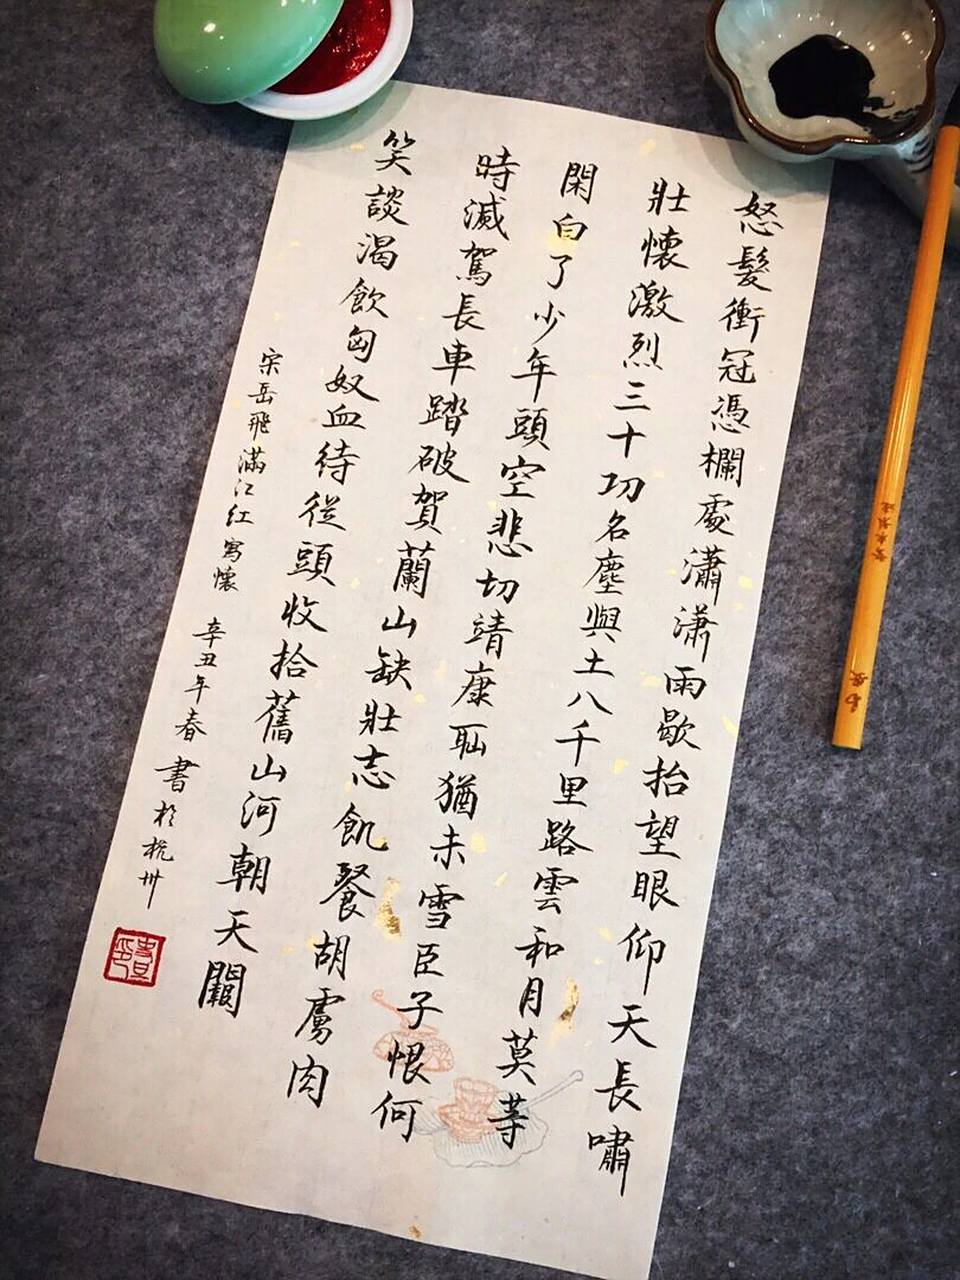 怒髮衝冠憑欄處瀟瀟雨歇抬望眼仰天長嘯
壯懷激烈三十功名塵與土八千里路雲和月莫等
閑白了少年頭空悲切靖康耻猶未雪臣子恨何
時滅駕長車踏破賀蘭山缺壯志飢餐胡虜肉
笑談渴飲匈奴血待從頭收拾舊山河朝天闕
宋岳飛滿江紅寫懷 辛丑年春書於杭州